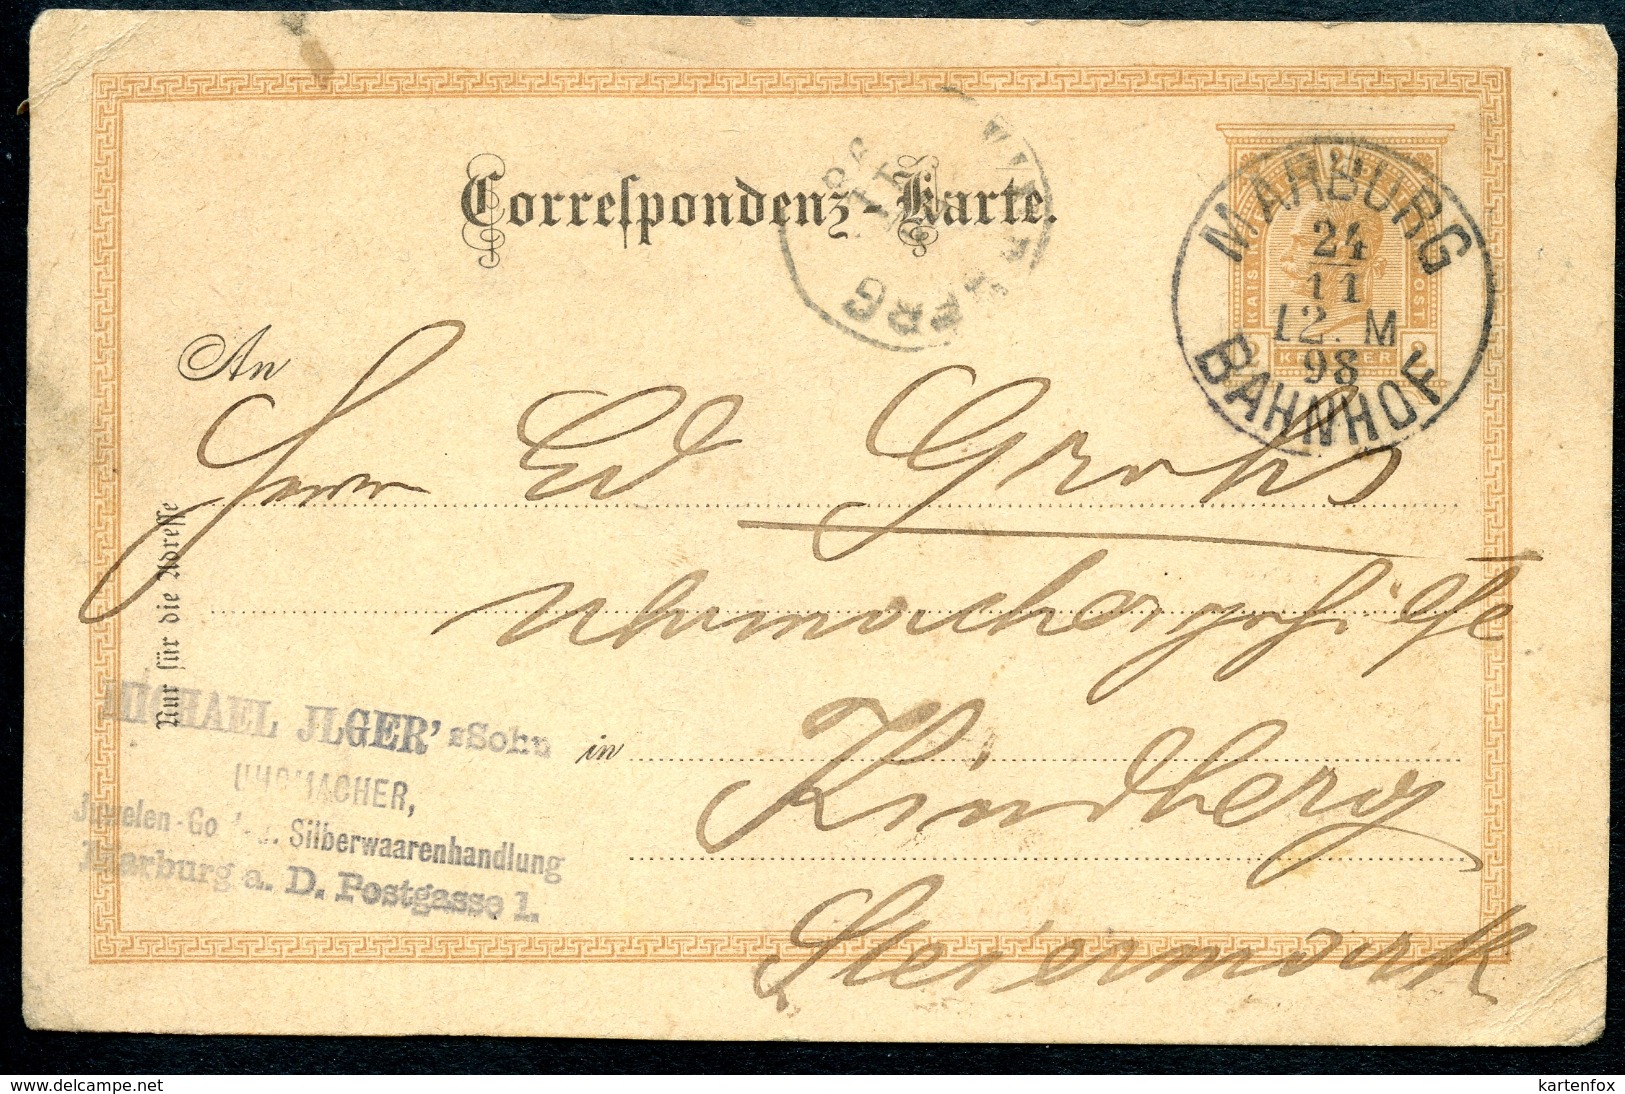 Correspondenz-Karte.
MARBURG
24
11
12. M
98
BAHNHOF
KAIS
POST
2 KREUZER 2
An
Herrn Ed Grohs
Uhrmachergehilfe
in Kindberg
Steiermark
Nur für die Adresse
MICHAEL JLGER'sSohn
UHRMACHER,
Juwelen-Gold- u. Silberwaarenhandlung
Marburg a. D. Postgasse 1.
delcampe.net
kartenfox